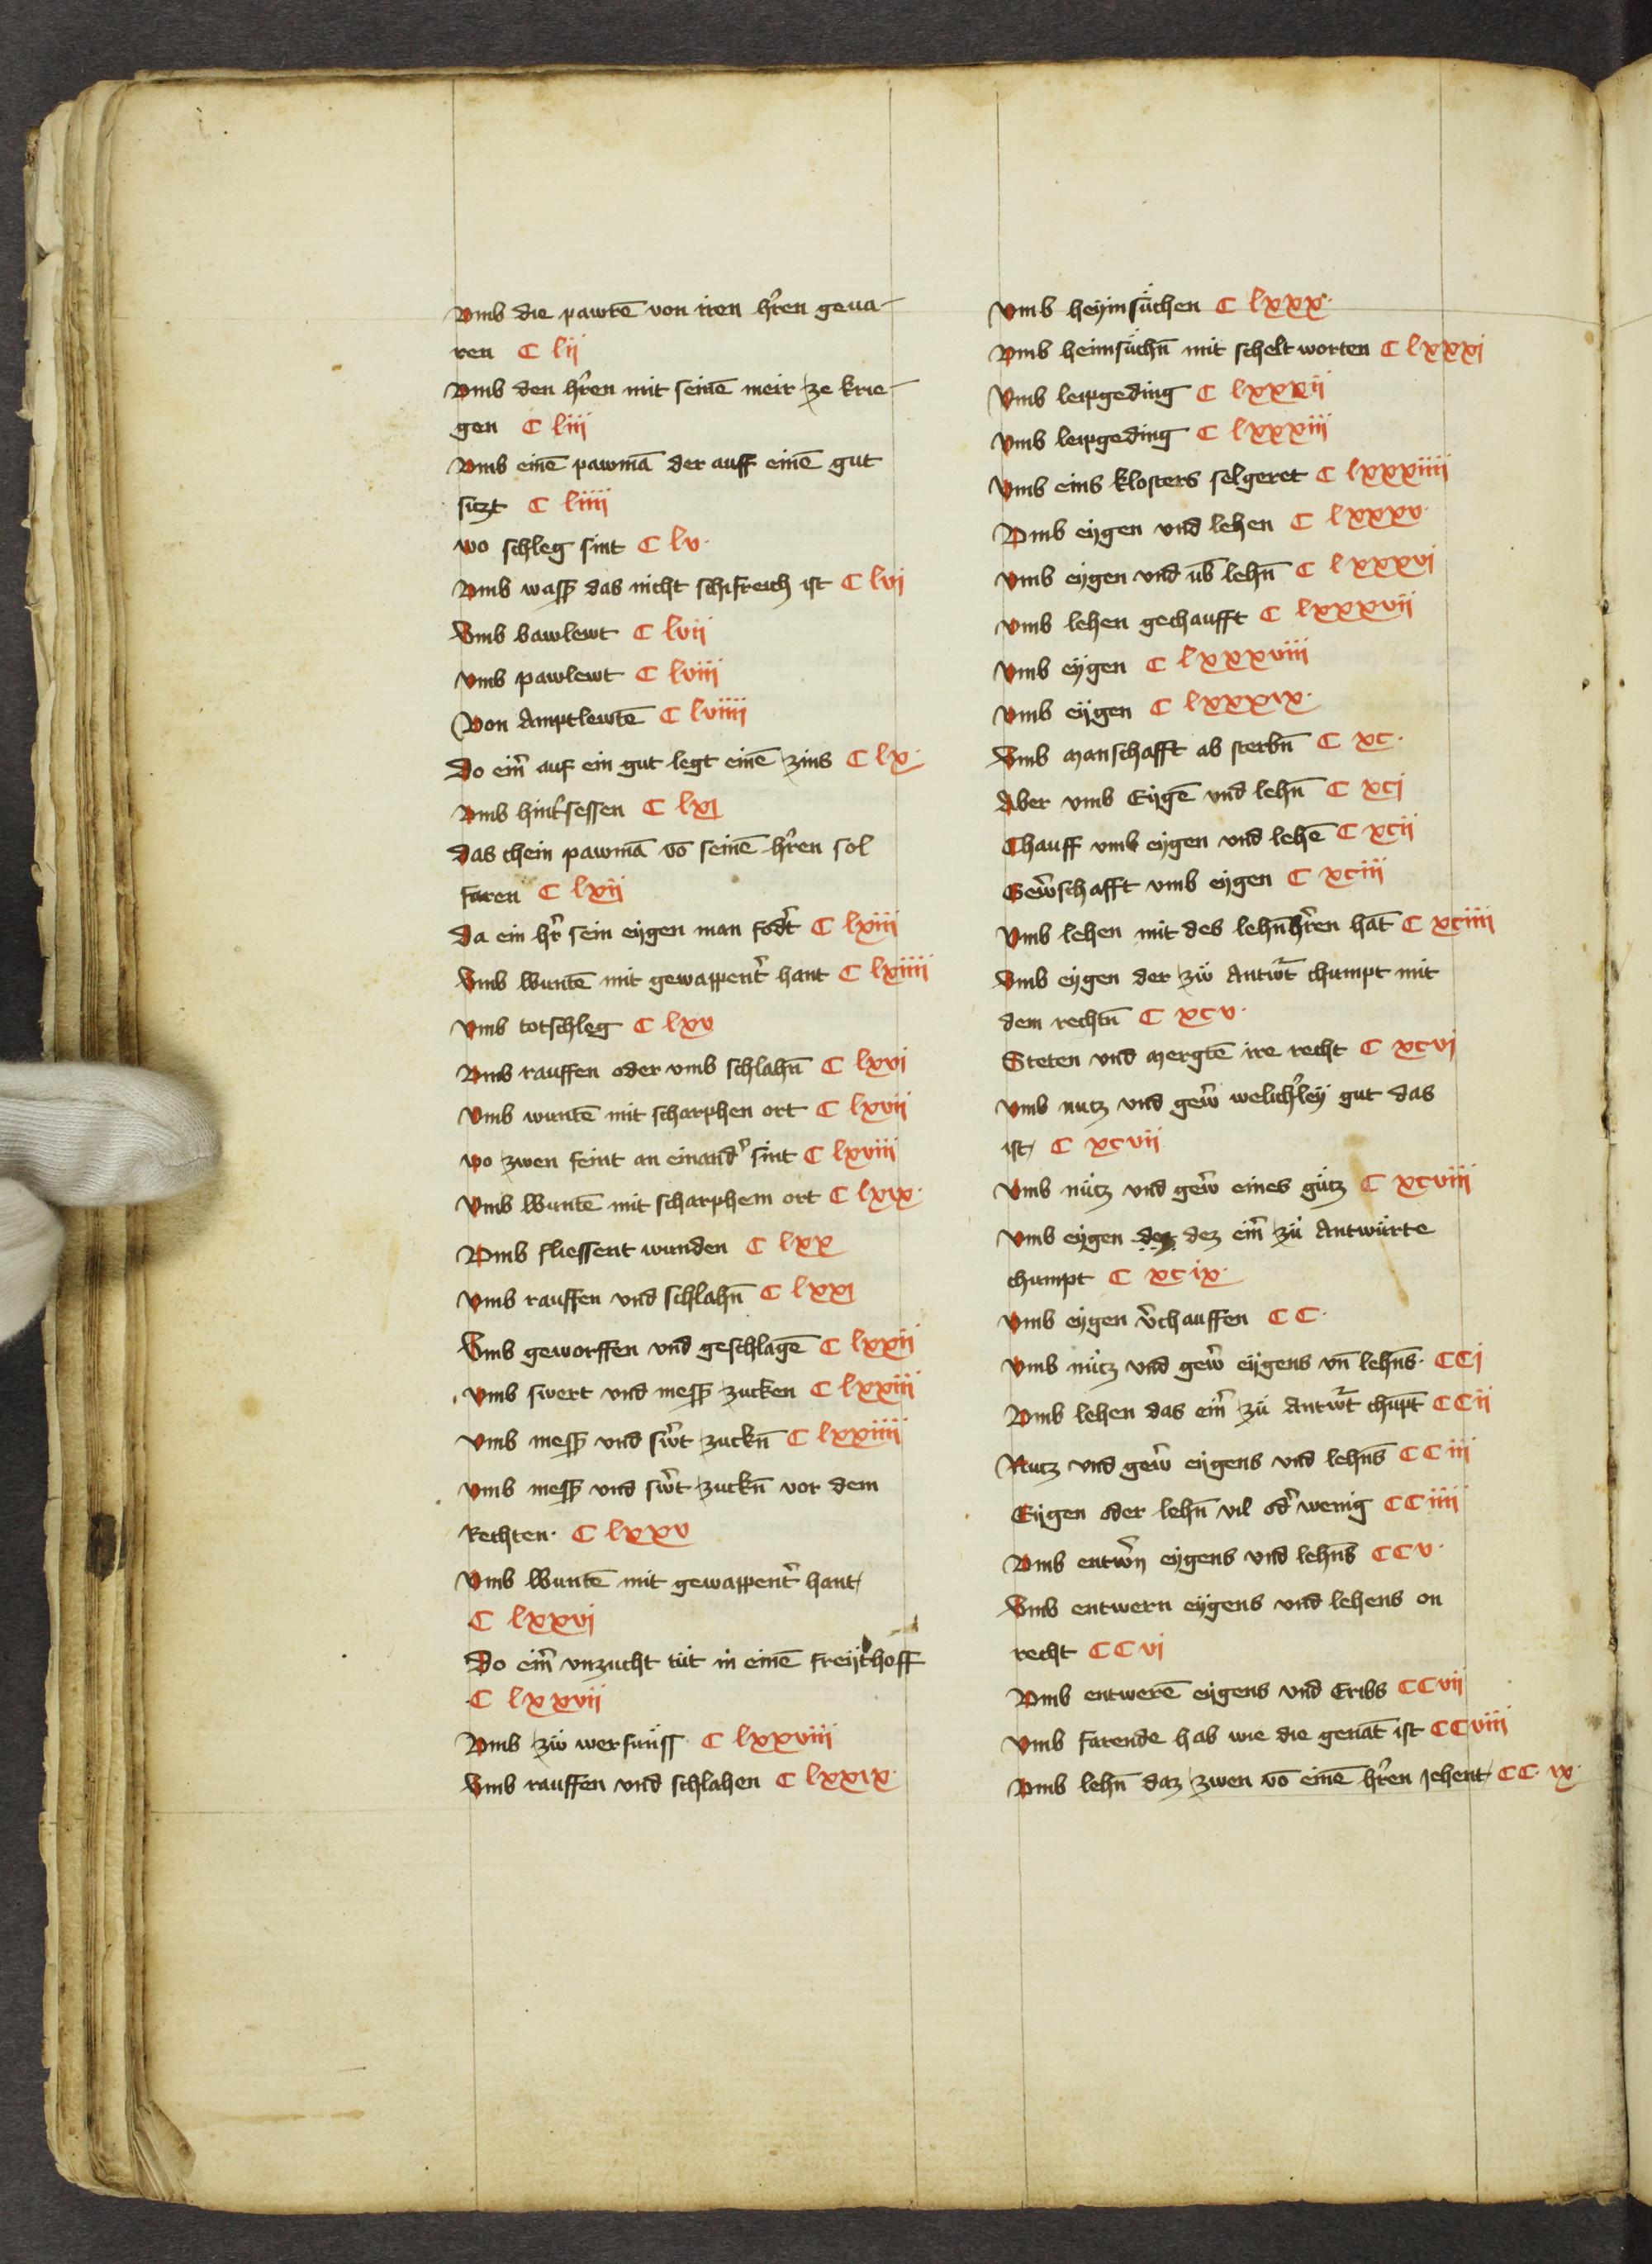 Vmb die pawrē von iren hr̄en geua-
ren C lij
Vmb den hr̄en mit seinē meir ze krie-
gen C liij
Vmb einē pawmā der auff einē gut
siczt C liiij
wo schleg sint C lv.
Vmb wass̄ das nicht schifreich ist C lvj
Vmb bawlewt C lvij
Vmb pawlewt C lviij
Von Amptlewtē C lviiij
Do ein̄ auf ein gut legt einē zins C lx.
Vmb hint̄sessen C lxj
Das chein pawmā vō seinē hr̄en sol
faren C lxij
Da ein hr̄ sein eygen man fodt̄ C lxiij
Vmb Wuntē mit gewappent̄ hant C lxiiij
Vmb totschleg C lxv
Vmb rauffen oder vmb schlahn̄ C lxvj
Vmb wuntē mit scharphen ort C lxvij
wo zwen feint an einand̄ sint C lxviij
Vmb Wuntē mit scharphem ort C lxix.
Vmb fliessent wunden C lxx
Vmb rauffen vnd schlahn̄ C lxxj
Vmb geworffen vnd geschlagē C lxxij
Vmb swert vnd mess̄ zucken C lxxiij
Vmb mess̄ vnd sw̄t zuckn̄ C lxxiiij
Vmb mess̄ vnd sw̄t zuckn̄ vor dem
Rechten. C lxxv
Vmb Wuntē mit gewappent̄ hant
C lxxvj
Do ein̄ vnzucht tüt in einē freythoff
C lxxvij
Vmb zw̄ werfnüss C lxxviij
Vmb rauffen vnd schlahen C lxxix.
Vmb heymsüchen C lxxx.
Vmb heimsüchn̄ mit schelt worten C lxxxj
Vmb leipgeding C lxxxij
Vmb leipgeding C lxxxiij
Vmb eins klosters selgeret C lxxxiiij
Vmb eygen vnd lehen C lxxxv.
Vmb eygen vnd üb̄ lehn̄ C lxxxvj
Vmb lehen gechaufft C lxxxvij
Vmb eygen C lxxxviij
Vmb eygen C lxxxix.
Vmb manschafft ab sterbn̄ C xc.
Aber vmb Eygē vnd lehn̄ C xcj
Chauff vmb eygen vnd lehē C xcij
Gew̄schafft vmb eygen C xciij
Vmb lehen mit des lehn̄hr̄en hāt C xciiij
Vmb eygen der zw̄ Antw̄t chumpt mit
dem rechtn̄ C xcv.
Steten vnd mergtē ire recht C xcvj
Vmb nutz vnd gew̄ welich̄ley gut das
ist C xcvij
Vmb nütz vnd gew̄ eines gütz C xcviij
Vmb eygen dez dez ein̄ zü Antwürte
chumpt C xcix.
Vmb eygen v̄chauffen CC.
Vmb nütz vnd gew̄ eygens vn̄ lehn̄s. CCj
Vmb lehen das ein̄ zü Antw̄t chūpt CCij
Nutz vnd gew̄ eygens vnd lehn̄s CCiij
Eygen oder lehn̄ vil od̄ wenig CCiiij
Vmb entw̄n eygens vnd lehn̄s CCv.
Vmb entwern eygens vnd lehens on
recht CCvj
Vmb entwerē eygens vnd Eribs CCvij
Vmb farende hab wie die genāt ist CCviij
Vmb lehn̄ daz zwen vō einē hr̄en jehent CC. ix.